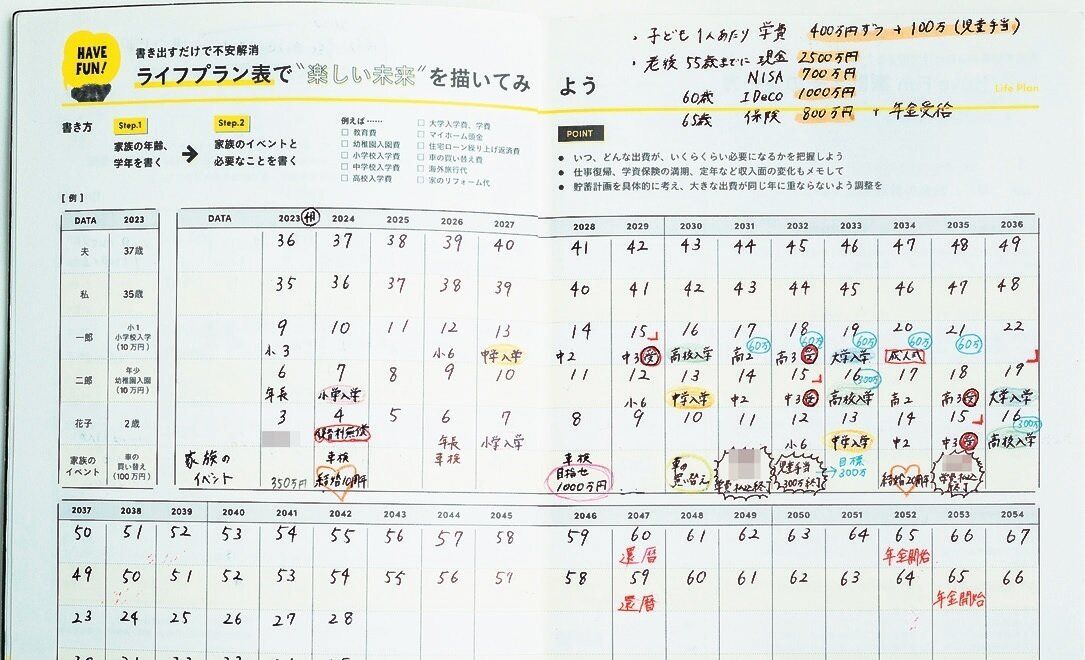 HAVE FUN!
書き出すだけで不安解消
ライフプラン表で"楽しい未来"を描いてみよう
・子ども1人あたり 学費 400万円ずつ + 100万(児童手当)
・老後 55歳までに 現金 2500万円
NISA 700万円
60歳 IDeCo 1000万円
65歳 保険 800万円 + 年金受給
Life Plan
書き方
Step.1
家族の年齢、
学年を書く
Step.2
家族のイベントと
必要なことを書く
例えば……
□ 教育費
□ 幼稚園入園費
□ 小学校入学費
□ 中学校入学費
□ 高校入学費
□ 大学入学費、学費
□ マイホーム頭金
□ 住宅ローン繰り上げ返済費
□ 車の買い替え費
□ 海外旅行代
□ 家のリフォーム代
POINT
● いつ、どんな出費が、いくらくらい必要になるかを把握しよう
● 仕事復帰、学資保険の満期、定年など収入面の変化もメモして
● 貯蓄計画を具体的に考え、大きな出費が同じ年に重ならないよう調整を
[例]
DATA 2023
夫 37歳
私 35歳
一郎 小1 小学校入学 (10万円)
二郎 年少 幼稚園入園 (10万円)
花子 2歳
家族のイベント 車の買い替え (100万円)
DATA 2023 2024 2025 2026 2027 2028 2029 2030 2031 2032 2033 2034 2035 2036
36 37 38 39 40 41 42 43 44 45 46 47 48 49
35 36 37 38 39 40 41 42 43 44 45 46 47 48
9 10 11 12 13 14 15 16 17 18 19 20 21 22
60万 60万 60万 60万
小3 小6 中学入学 中2 中3 受 高校入学 高2 高3 受 大学入学 成人式
6 7 8 9 10 11 12 13 14 15 16 17 18 19
300万
年長 小学入学 小6 中学入学 中2 中3 受 高校入学 高2 高3 受 大学入学
3 4 5 6 7 8 9 10 11 12 13 14 15 16
300万
保育料無償 年長 小学入学 小6 中学入学 中2 中3 受 高校入学
家族のイベント 350万円 車検 結婚10周年 車検 車検 目指せ 1000万円 車の買い替え 学資払込終了 児童手当 300万終了 →目標 300万 結婚20周年 学資払込終了
2037 2038 2039 2040 2041 2042 2043 2044 2045 2046 2047 2048 2049 2050 2051 2052 2053 2054
50 51 52 53 54 55 56 57 58 59 60 61 62 63 64 65 66 67
還暦 年金開始
49 50 51 52 53 54 55 56 57 58 59 60 61 62 63 64 65 66
還暦 年金開始
23 24 25 26 27 28